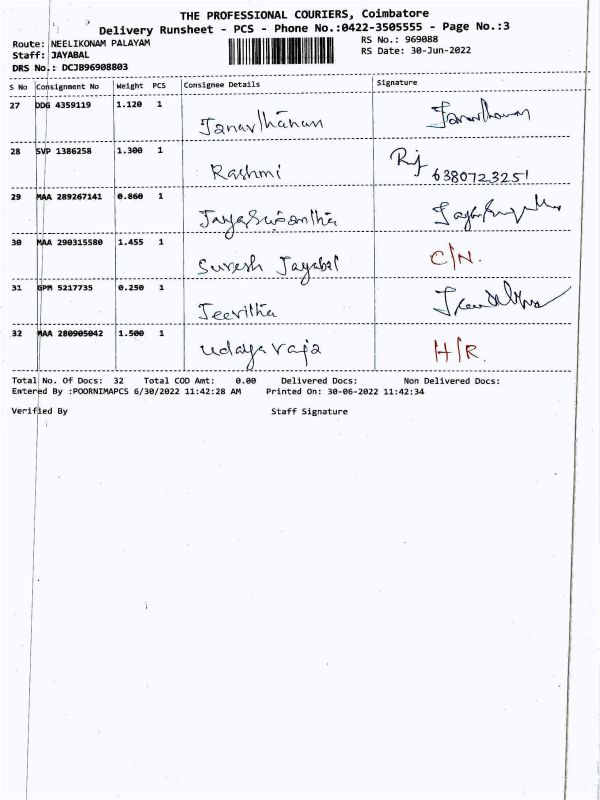 THE PROFESSIONAL COURIERS, Coimbatore
Delivery Runsheet - PCS - Phone No.:0422-3505555 - Page No.:3
Route: NEELIKONAM PALAYAM RS No.: 969088
Staff: JAYABAL RS Date: 30-Jun-2022
DRS No.: DCJB96908803
S No Consignment No Weight PCS Consignee Details Signature
27 DDG 4359119 1.120 1 Janardhanan
28 SVP 1386258 1.300 1 Rashmi 6380723251
29 MAA 289267141 0.860 1
30 MAA 290315580 1.455 1 Suresh Jayabal C/N.
31 GPM 5217735 0.250 1 Jeevitha
32 MAA 280905042 1.500 1 udaya raja H/R.
Total No. Of Docs: 32 Total COD Amt: 0.00 Delivered Docs: Non Delivered Docs:
Entered By :POORNIMAPCS 6/30/2022 11:42:28 AM Printed On: 30-06-2022 11:42:34
Verified By Staff Signature